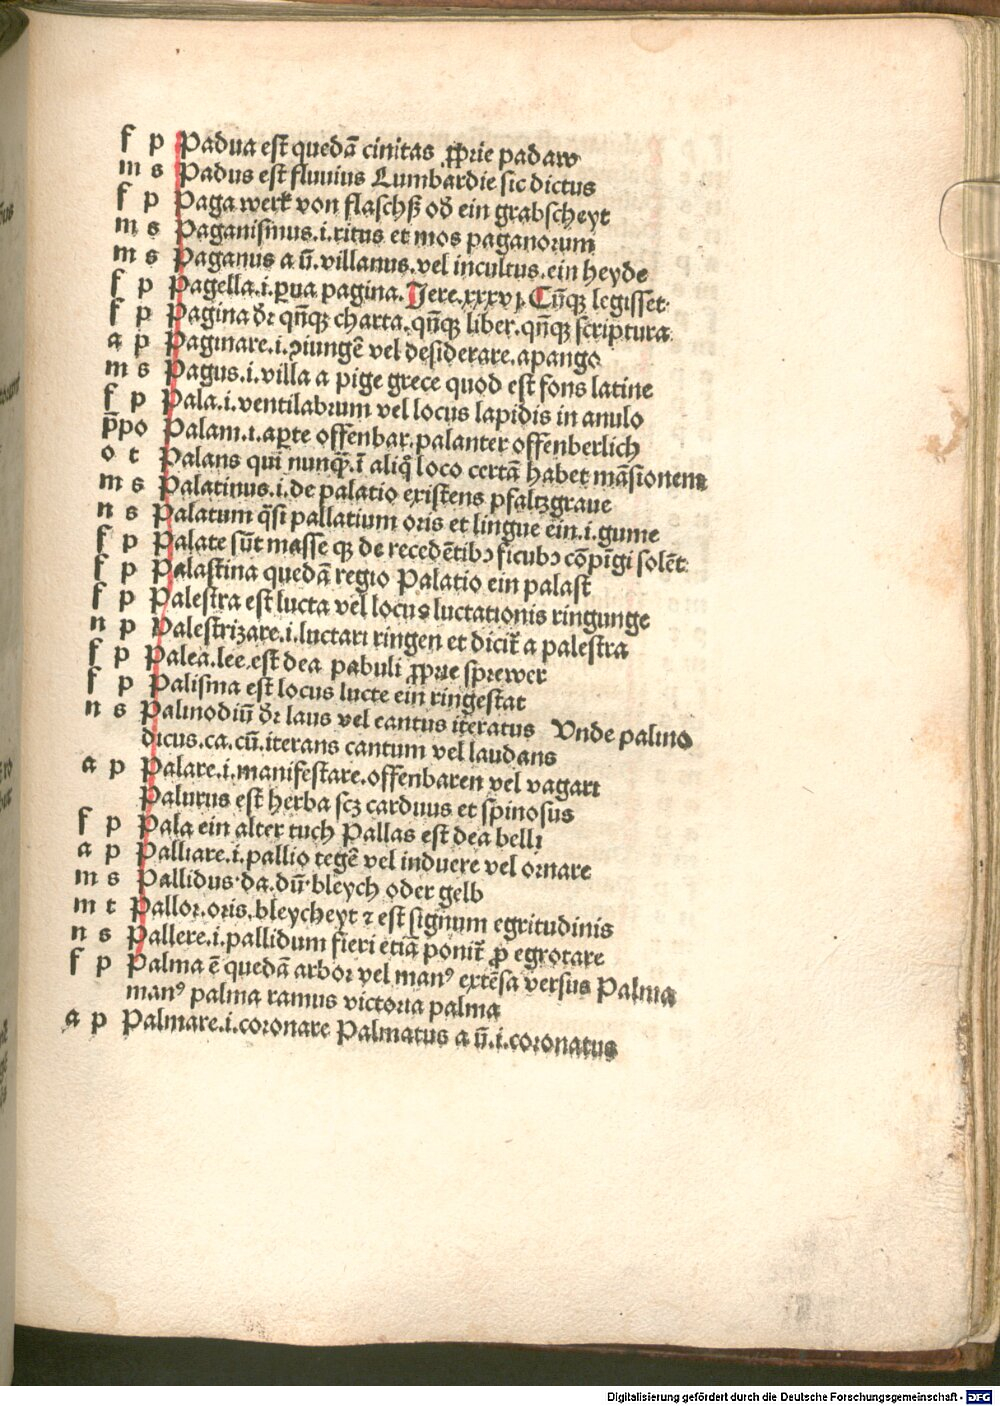 f p Padua est quedā ciuitas ꝓprie padaw
m s Padus est fluuius Lumbardie sic dictus
f p Paga werk von flaschß oď ein grabscheyt
m s Paganismus.i.ritus et mos paganorum
m s Paganus a ū.villanus.vel incultus.ein heyde
f p Pagella.i.ꝑua pagina.Jere.xxxvj.Cūqꝫ legisset
f p Pagina dr̄ qn̄qꝫ charta.qn̄qꝫ liber.qn̄qꝫ scriptura
a p Paginare.i.ꝯiungē vel desiderare.apango
m s Pagus.i.villa a pige grece quod est fons latine
f p Pala.i.ventilabrum vel locus lapidis in anulo
p̄po Palam.i.aꝑte offenbar.palanter offenberlich
o t Palans qui nunqꝫ.ī aliq̄ loco certā habet māsionem
m s Palatinus.i.de palatio existens pfaltzgraue
n s Palatum q̄si pallatium oris et lingue ein.i.gume
f p Palate sūt masse qꝫ de recedētibꝰ ficubꝰ cōpīgi solēt
f p Palastina quedā regio Palatio ein palast
f p Palestra est lucta vel locus luctationis ringunge
n p Palestrizare.i.luctari ringen et dicit̄ a palestra
f p Palea.lee.est dea pabuli ꝓprie sprewer
f p Palisma est locus lucte ein ringestat
n s Palinodiū dr̄ laus vel cantus iteratus Vnde palino
dicus.ca.cū.iterans cantum vel laudans
a p Palare.i.manifestare.offenbaren vel vagari
Palurus est herba scꝫ carduus et spinosus
f p Pala ein alter tuch Pallas est dea belli
a p Palliare.i.pallio tegē vel induere vel ornare
m s Pallidus.da.dū.bleych oder gelb
m t Pallor.oris.bleycheyt ⁊ est signum egritudinis
n s Pallere.i.pallidum fieri etiā ponit̄ ꝓ egrotare
f p Palma ē quedā arbor vel manꝰ extēsa versus Palma
manꝰ palma ramus victoria palma
a p Palmare.i.coronare Palmatus a ū.i.coronatus
Digitalisierung gefördert durch die Deutsche Forschungsgemeinschaft - DFG